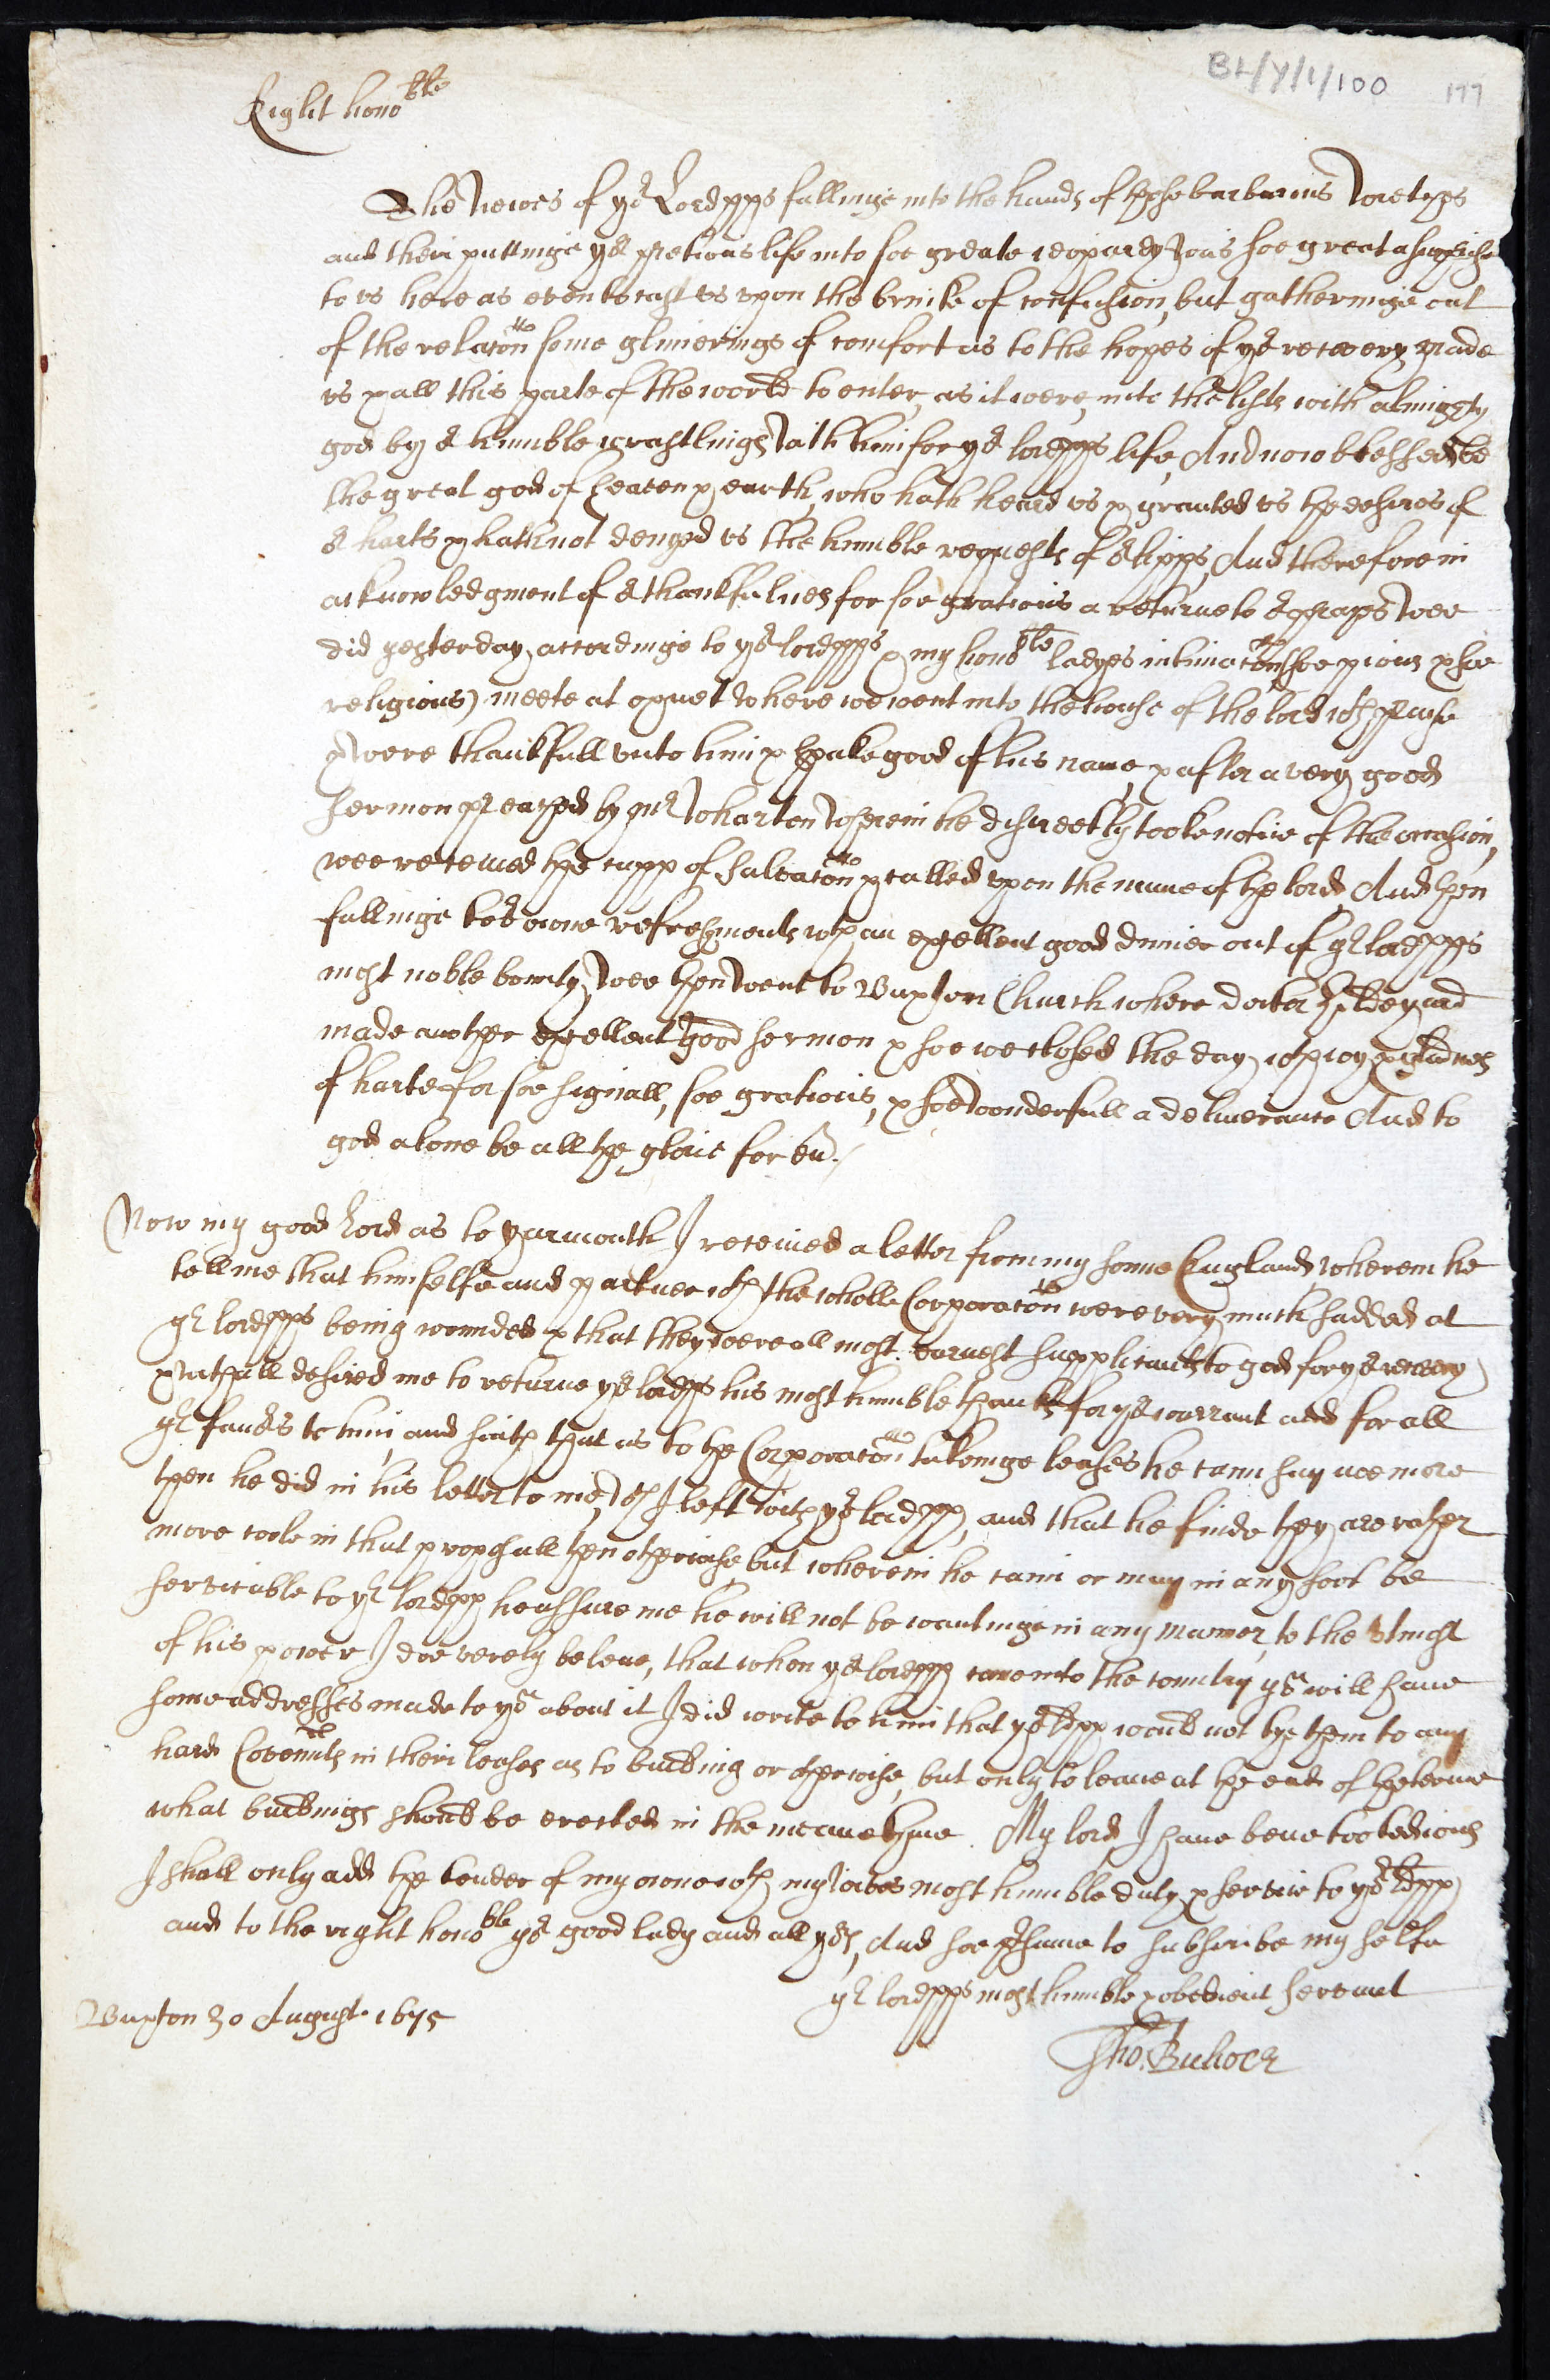 BL/Y/1/100 177
Right hono^ble
The newes of yo^r Lordpps fallinge into the hands of those barbarous wretches
and their puttinge yo^r pretious life into soe greate ieopardy was soe great a surprise
to vs here as even to cast vs vpon the brinke of confusion, but gatheringe out
of the relacon some glimerings of comfort as to the hopes of yo^r recovery made
vs & all this parte of the world to enter, as it were, into the lists with almighty
god by o^r humble wrastlings with him for yo^r lordpps life, And now blessed be
the great god of heaven & earth, who hath heard vs & granted vs the desires of
o^r harts & hath not denyed vs the humble requests of o^r lipps, And therefore in
acknowledgment of o^r thankfulnes for soe gratious a returne to o^r prayers wee
did yesterday, accordinge to yo^r lordpps & my hono^ble ladyes intimacon (soe pious & soe
religious) meete at oxnet where we went into the house of the lord w^th praise
& were thankfull vnto him & spake good of his name, & after a very good
sermon preached by m^r Wharton wherein he discreetly tooke notice of the occasion,
wee received the cupp of salvacon & called vpon the name of the lord, And then
fallinge to o^r owne refreshments w^th an exellent good dinner out of y^r lordpps
most noble bounty, wee then went to Buxton Church where doctor Hildeyard
made another exellent good sermon & soe we closed the day w^th ioy & gladnes
of harte for soe signall, soe gratious, & soe wonderfull a deliverance And to
god alone be all the glorie for eu^r./
Now my good Lord as to Yarmouth I received a letter from my sonne England wherein he
tell me that himselfe and partner w^th the wholle Corporacon were very much sadded at
y^r lordpps being wounded & that they were all most earnest supplicants to god for yo^r recovery
& withall desired me to returne yo^r lordpps his most humble thanks for yo^r warrant and for all
y^r favo^rs to him, and saith that as to the Corporacon takeinge leases he cann say noe more
then he did in his letter to me, w^ch I left with yo^r lordpp, and that he finde they are rather
more coole in that proposall then otherwise, but wherein he cann or may in any sort be
serviceable to y^r lordpp he assure me he will not be wantinge in any manner, to the vtmost
of his power I doe verely beleve, that when yo^r lordpp come into the country yo^u will have
some addresses made to yo^u about it I did write to him that yo^r ldpp would not tye them to any
hard Covenants in their leases as to building or otherwise, but only to leave at the end of the terme
what buildings should be erected in the meane tyme. My lord I have bene too tedious
I shall only add the tender of my owne w^th my wives most humble duty & service to yo^r ldpp
and to the right hono^ble yo^r good lady and all yo^rs, And soe presume to subscribe my selfe
y^r lordpps most humble & obedient servant
Buxton 30 August 1675
Tho: Bulwer